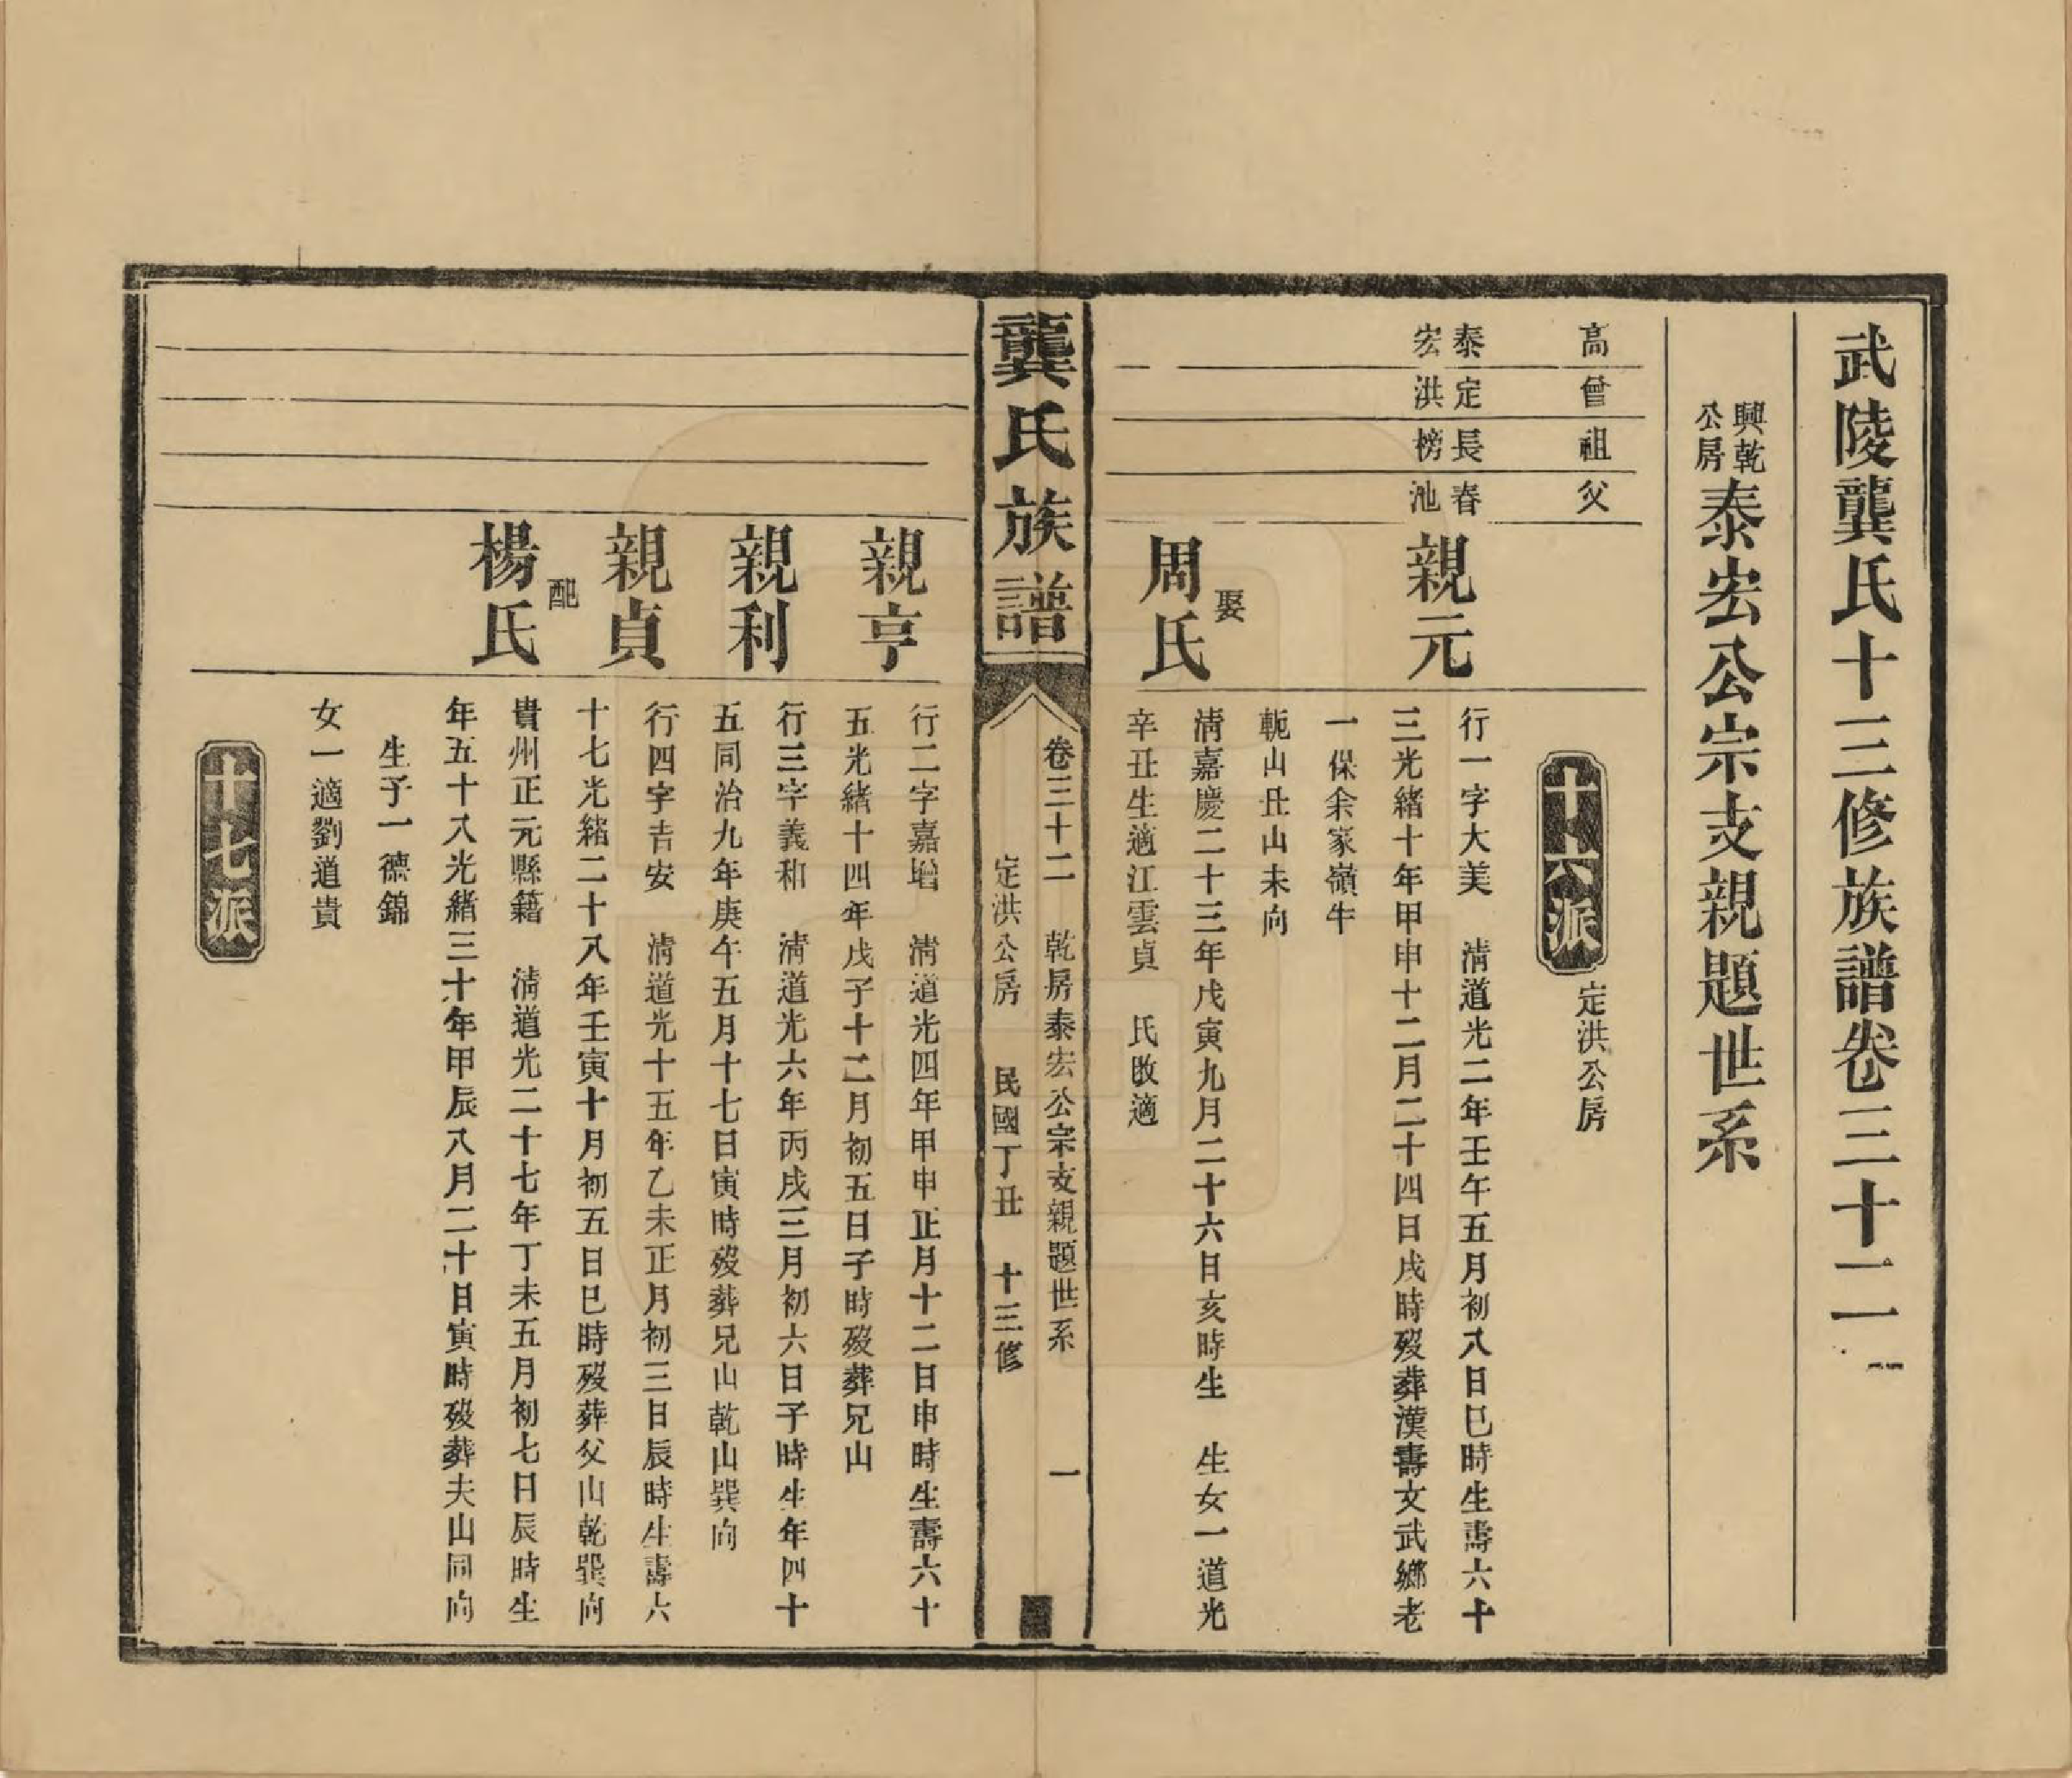 武陵龔氏十三修族譜卷三十二
興乾
公房
泰宏公宗支親題世系
高
曾
祖
父
十六派
定洪公房
泰宏
定洪
長榜
春池
親元
行一字大美　清道光二年壬午五月初八日巳時生壽六十
三光緒十年甲申十二月二十四日戌時歿葬漢壽文武鄉老
一保余家嶺牛
軛山丑山未向
娶
周氏
清嘉慶二十三年戊寅九月二十六日亥時生　生女一道光
辛丑生適江雲貞　氏改適
龔氏族譜
卷三十二　乾房泰宏公宗支親題世系　一
定洪公房　民國丁丑　十三修
親亨
行二字嘉增　清道光四年甲申正月十二日申時生壽六十
五光緒十四年戊子十二月初五日子時歿葬兄山
親利
行三字義和　清道光六年丙戌三月初六日子時生年四十
五同治九年庚午五月十七日寅時歿葬兄山乾山巽向
親貞
行四字吉安　清道光十五年乙未正月初三日辰時生壽六
十七光緒二十八年壬寅十月初五日巳時歿葬父山乾巽向
配
楊氏
貴州正元縣籍　清道光二十七年丁未五月初七日辰時生
年五十八光緒三十年甲辰八月二十日寅時歿葬夫山同向
生子一德錦
女一適劉道貴
十七派